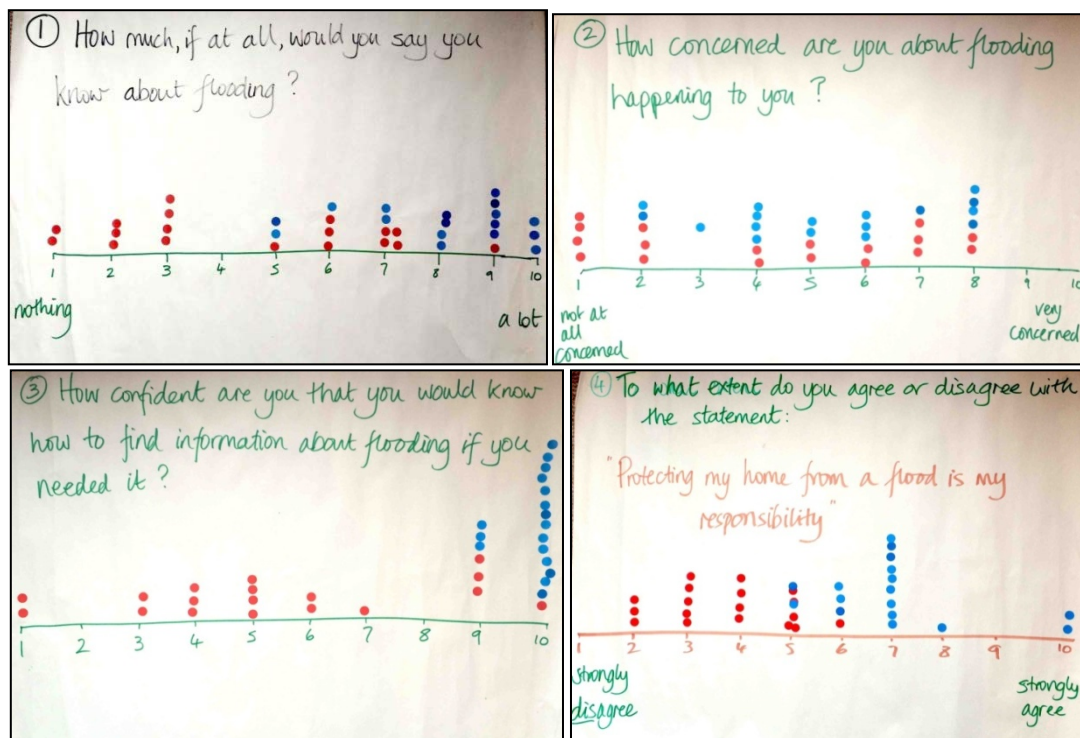 ① How much, if at all, would you say you
know about flooding?
1 2 3 4 5 6 7 8 9 10
nothing
a lot
② How concerned are you about flooding
happening to you?
1 2 3 4 5 6 7 8 9 10
not at
all
concerned
very
concerned
③ How confident are you that you would know
how to find information about flooding if you
needed it?
1 2 3 4 5 6 7 8 9 10
④ To what extent do you agree or disagree with
the statement:
"Protecting my home from a flood is my
responsibility"
1 2 3 4 5 6 7 8 9 10
strongly
disagree
strongly
agree